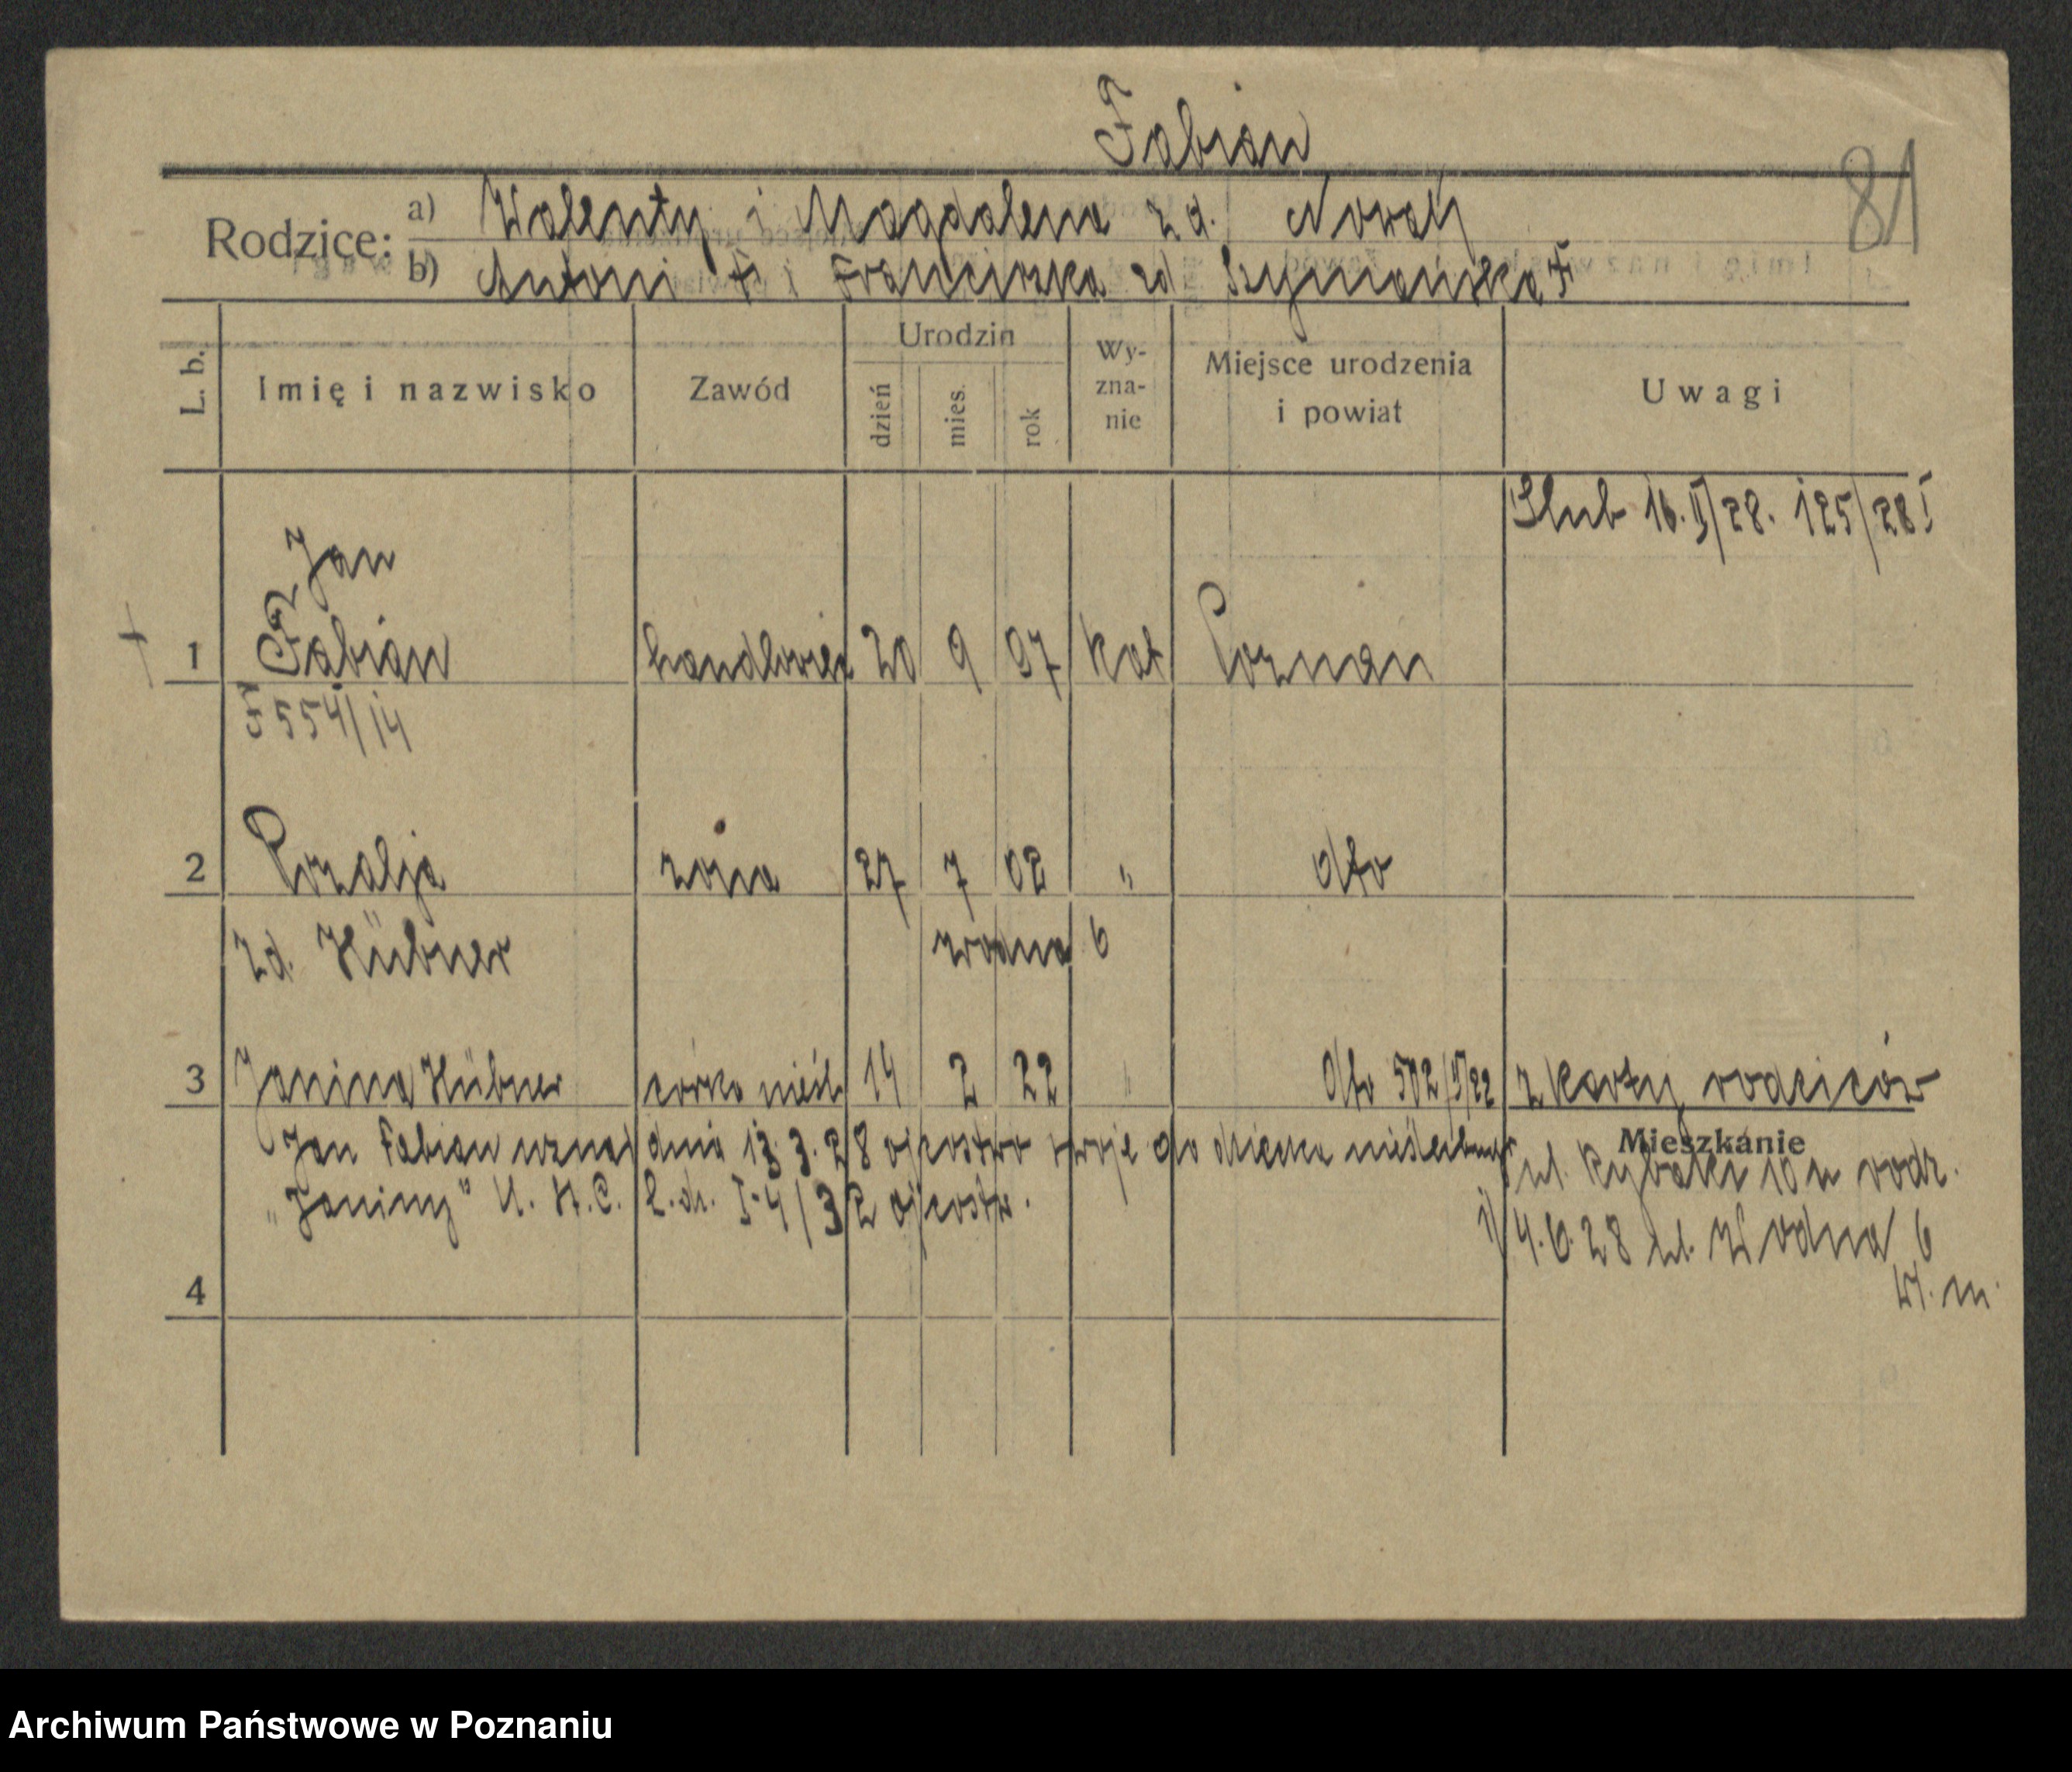 Fabian
81
Rodzice: a) Walenty i Magdalena zd. Nowak
b) Antoni † i Franciszka zd Szymańska †
L. b. Imię i nazwisko Zawód Urodzin dzień mies. rok Wy-zna-nie Miejsce urodzenia i powiat Uwagi
Ślub 16.II/28. 125/28 I
Jan
1 Fabian handlowiec 20 9 97 kat Poznań
5554/14
2 Rozalja żona 27 7 02 " dto
zd. Hübner wodna 6
3 Janina Hübner córka nieśl 14 2 22 " dto 502/II/22 z karty rodziców
Jan Fabian uznał dnia 13.3.28 ojcostwo swoje do dziecka nieślubnego
"Janiny" U. S. C. L. dz. I-4/32 ojcostw.
Mieszkanie
ul. Rybaki 10 u rodz.
1) 4.6.28 ul. Wodna 6
W. m.
4
Archiwum Państwowe w Poznaniu